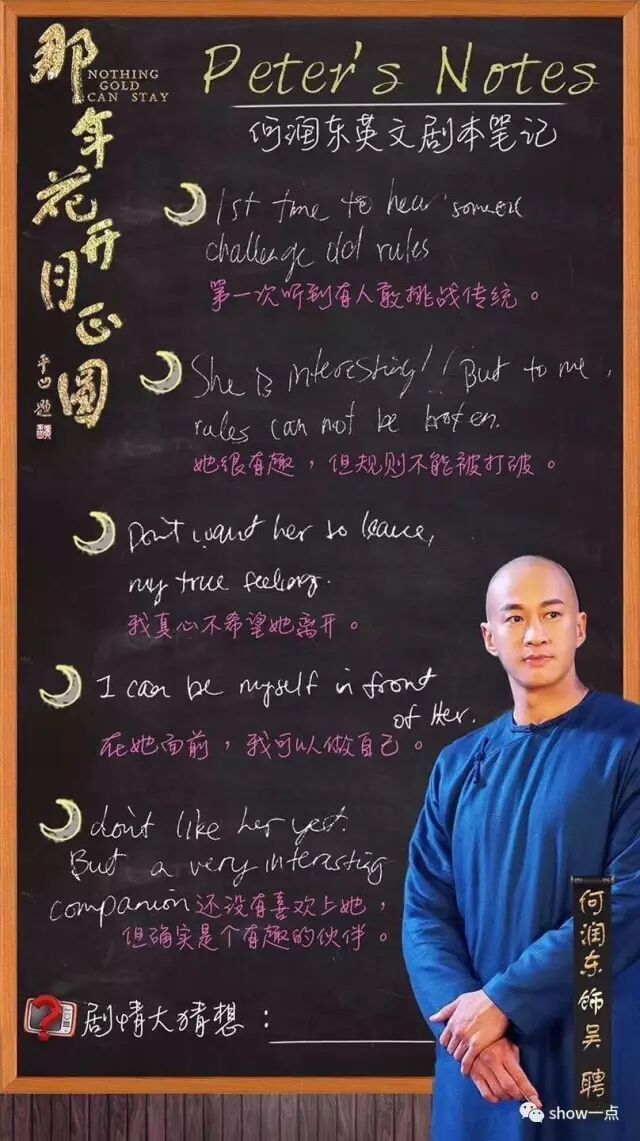 那年花开月正圆
NOTHING
GOLD
CAN STAY
平凹题
Peter's Notes
何润东英文剧本笔记
1st time to hear someone
challenge old rules
第一次听到有人敢挑战传统。
She is interesting!! But to me,
rules can not be broken.
她很有趣，但规则不能被打破。
Don't want her to leave,
my true feeling.
我真心不希望她离开。
I can be myself in front
of Her.
在她面前，我可以做自己。
don't like her yet.
But a very interesting
companion 还没有喜欢上她，
但确实是个有趣的伙伴。
剧情大猜想：
何润东 饰 吴聘
show一点